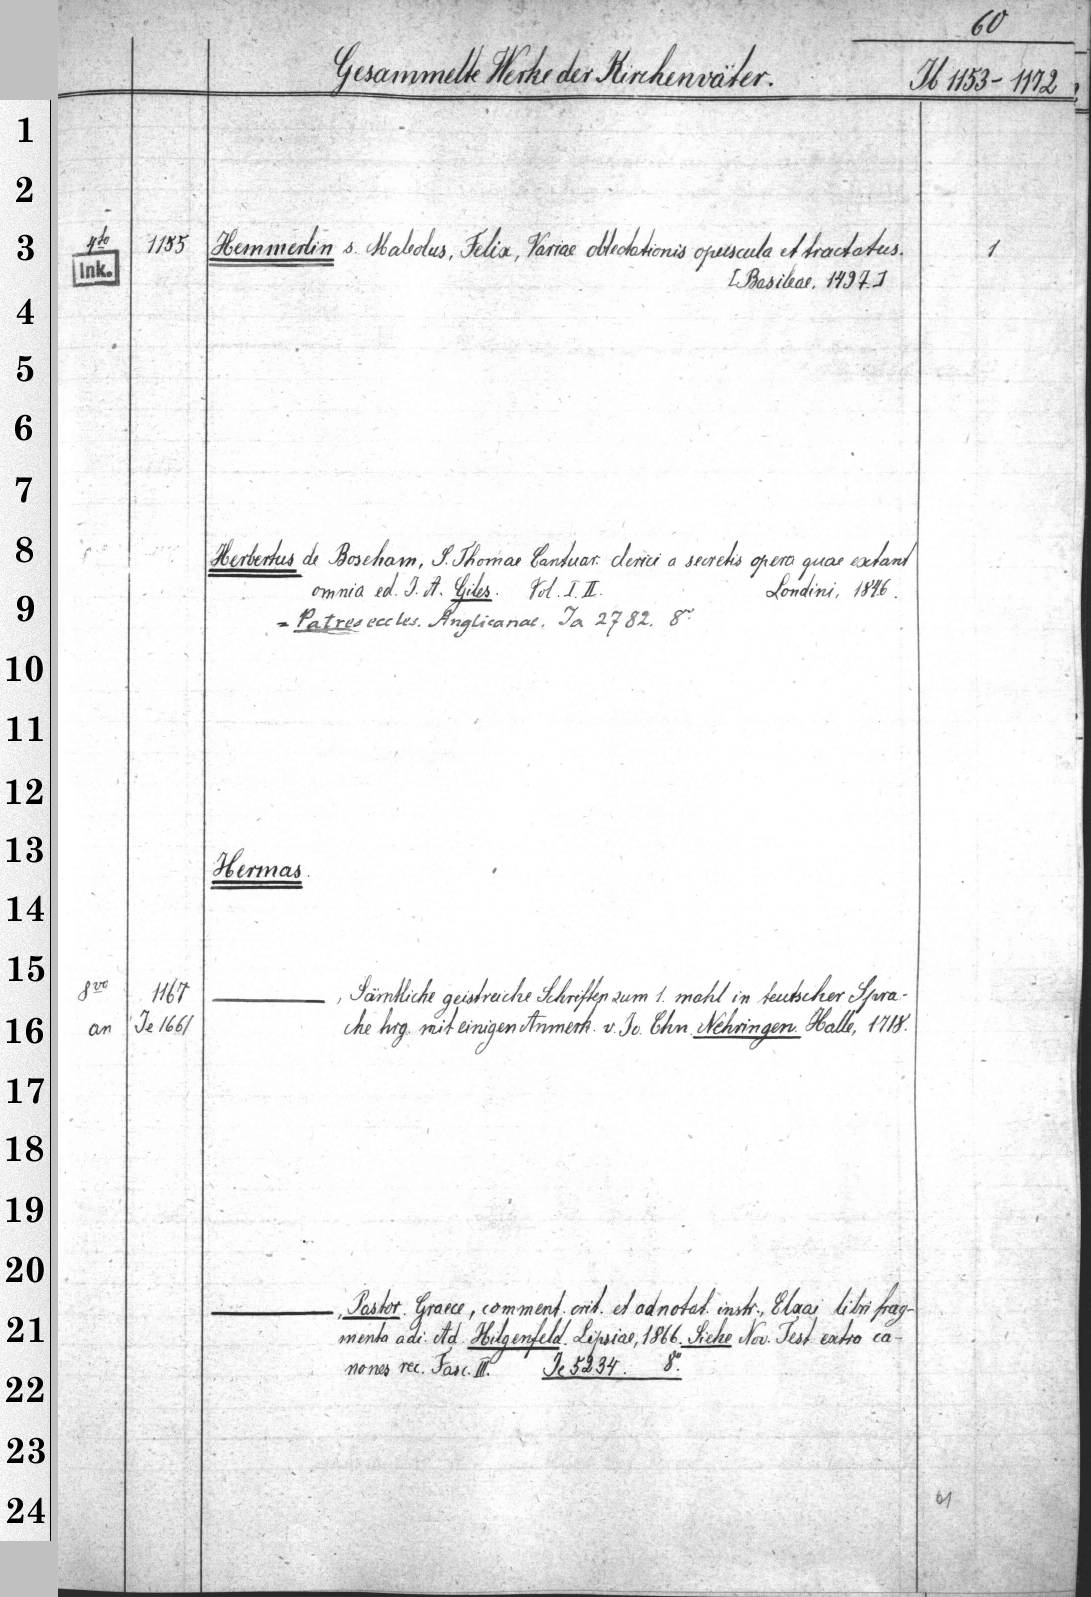 60
Gesammelte Werke der Kirchenväter. Ib 1153-1172
1
2
3
4
5
6
7
8
9
10
11
12
13
14
15
16
17
18
19
20
21
22
23
24
4to 1155 Hemmerlin s. Maleolus, Felix, Variae oblectationis opuscula et tractatus. 1
Ink. [Basileae, 1497.]
Herbertus de Boseham, S. Thomae Cantuar. clerici a secretis opera quae extant
omnia ed. I. A. Giles. Vol. I. II. Londini, 1846.
= Patres eccles. Anglicanae. Ia 2782. 8°
Hermas.
8vo 1167 , Sämtliche geistreiche Schriften zum 1. mahl in teutscher Spra-
an Ie 1661 che hrg. mit einigen Anmerk. v. Jo. Chn. Nehringen. Halle, 1718.
, Pastor. Graece, comment. crit. et adnotat. instr., Elxai libri frag-
menta adi. Ad. Hilgenfeld. Lipsiae, 1866. Siehe Nov. Test. extra ca-
nones rec. Fasc. III. Ie 5234. 8°.
61